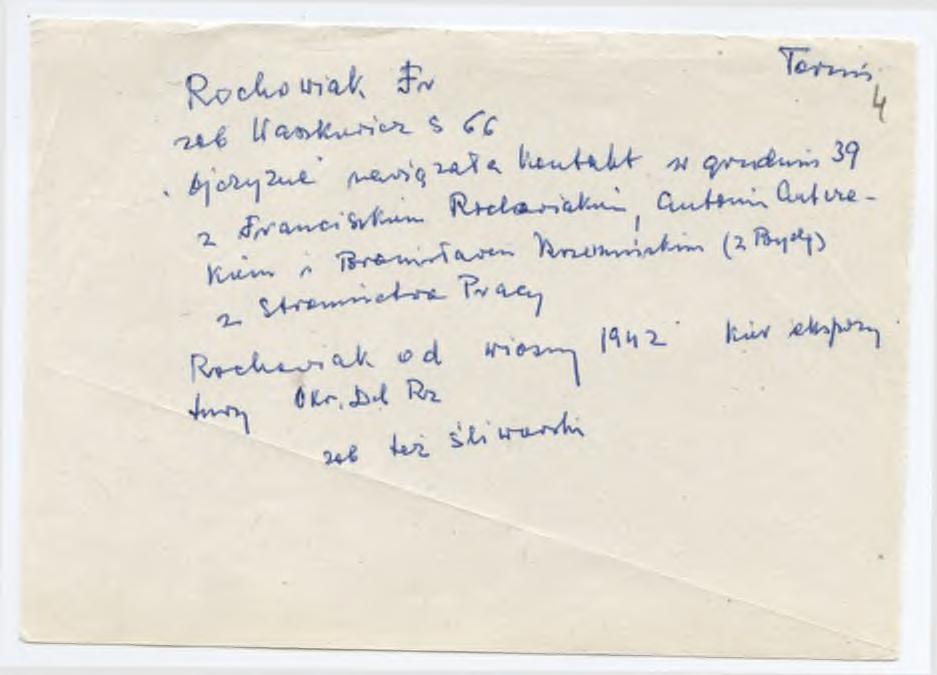 Toruń
4
Rochowiak Fr
zob Waszkiewicz s 66
. Ojczyzna nawiązała kontakt w grudniu 39
z Franciszkiem Rochowiakiem, Antonim Antcza-
kiem i Bronisławem (z Bydg)
z Stronnictwa Pracy
Rochowiak od wiosny 1942 kier ekspozy
tury Okr. Del Rz
zob też śliwarski